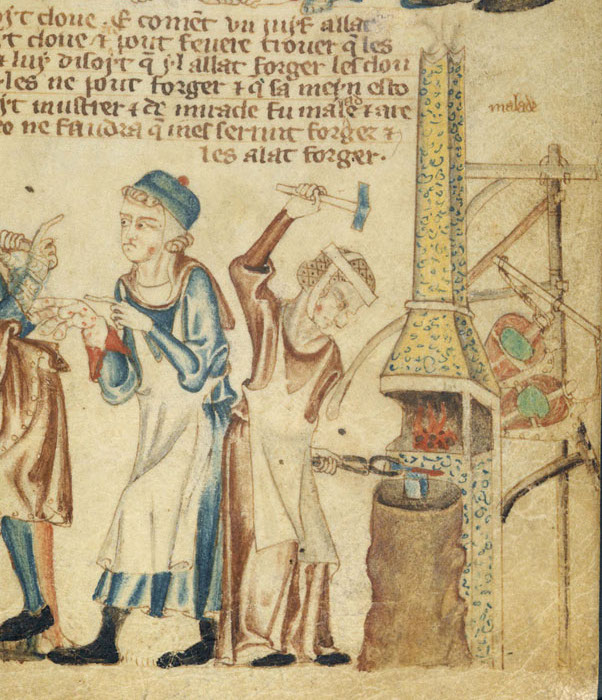 oyt cloue . & comēt vn iuyf allat
yt cloue & pout feuere trouer q̄ les
& luy disoyt q̄ yl allat forger les clou
les ne pout forger & q̄ sa meyn esto
yt mustrer & de miracle fu malade &
ne faudra q̄ forgez &
les alat forger .
malade